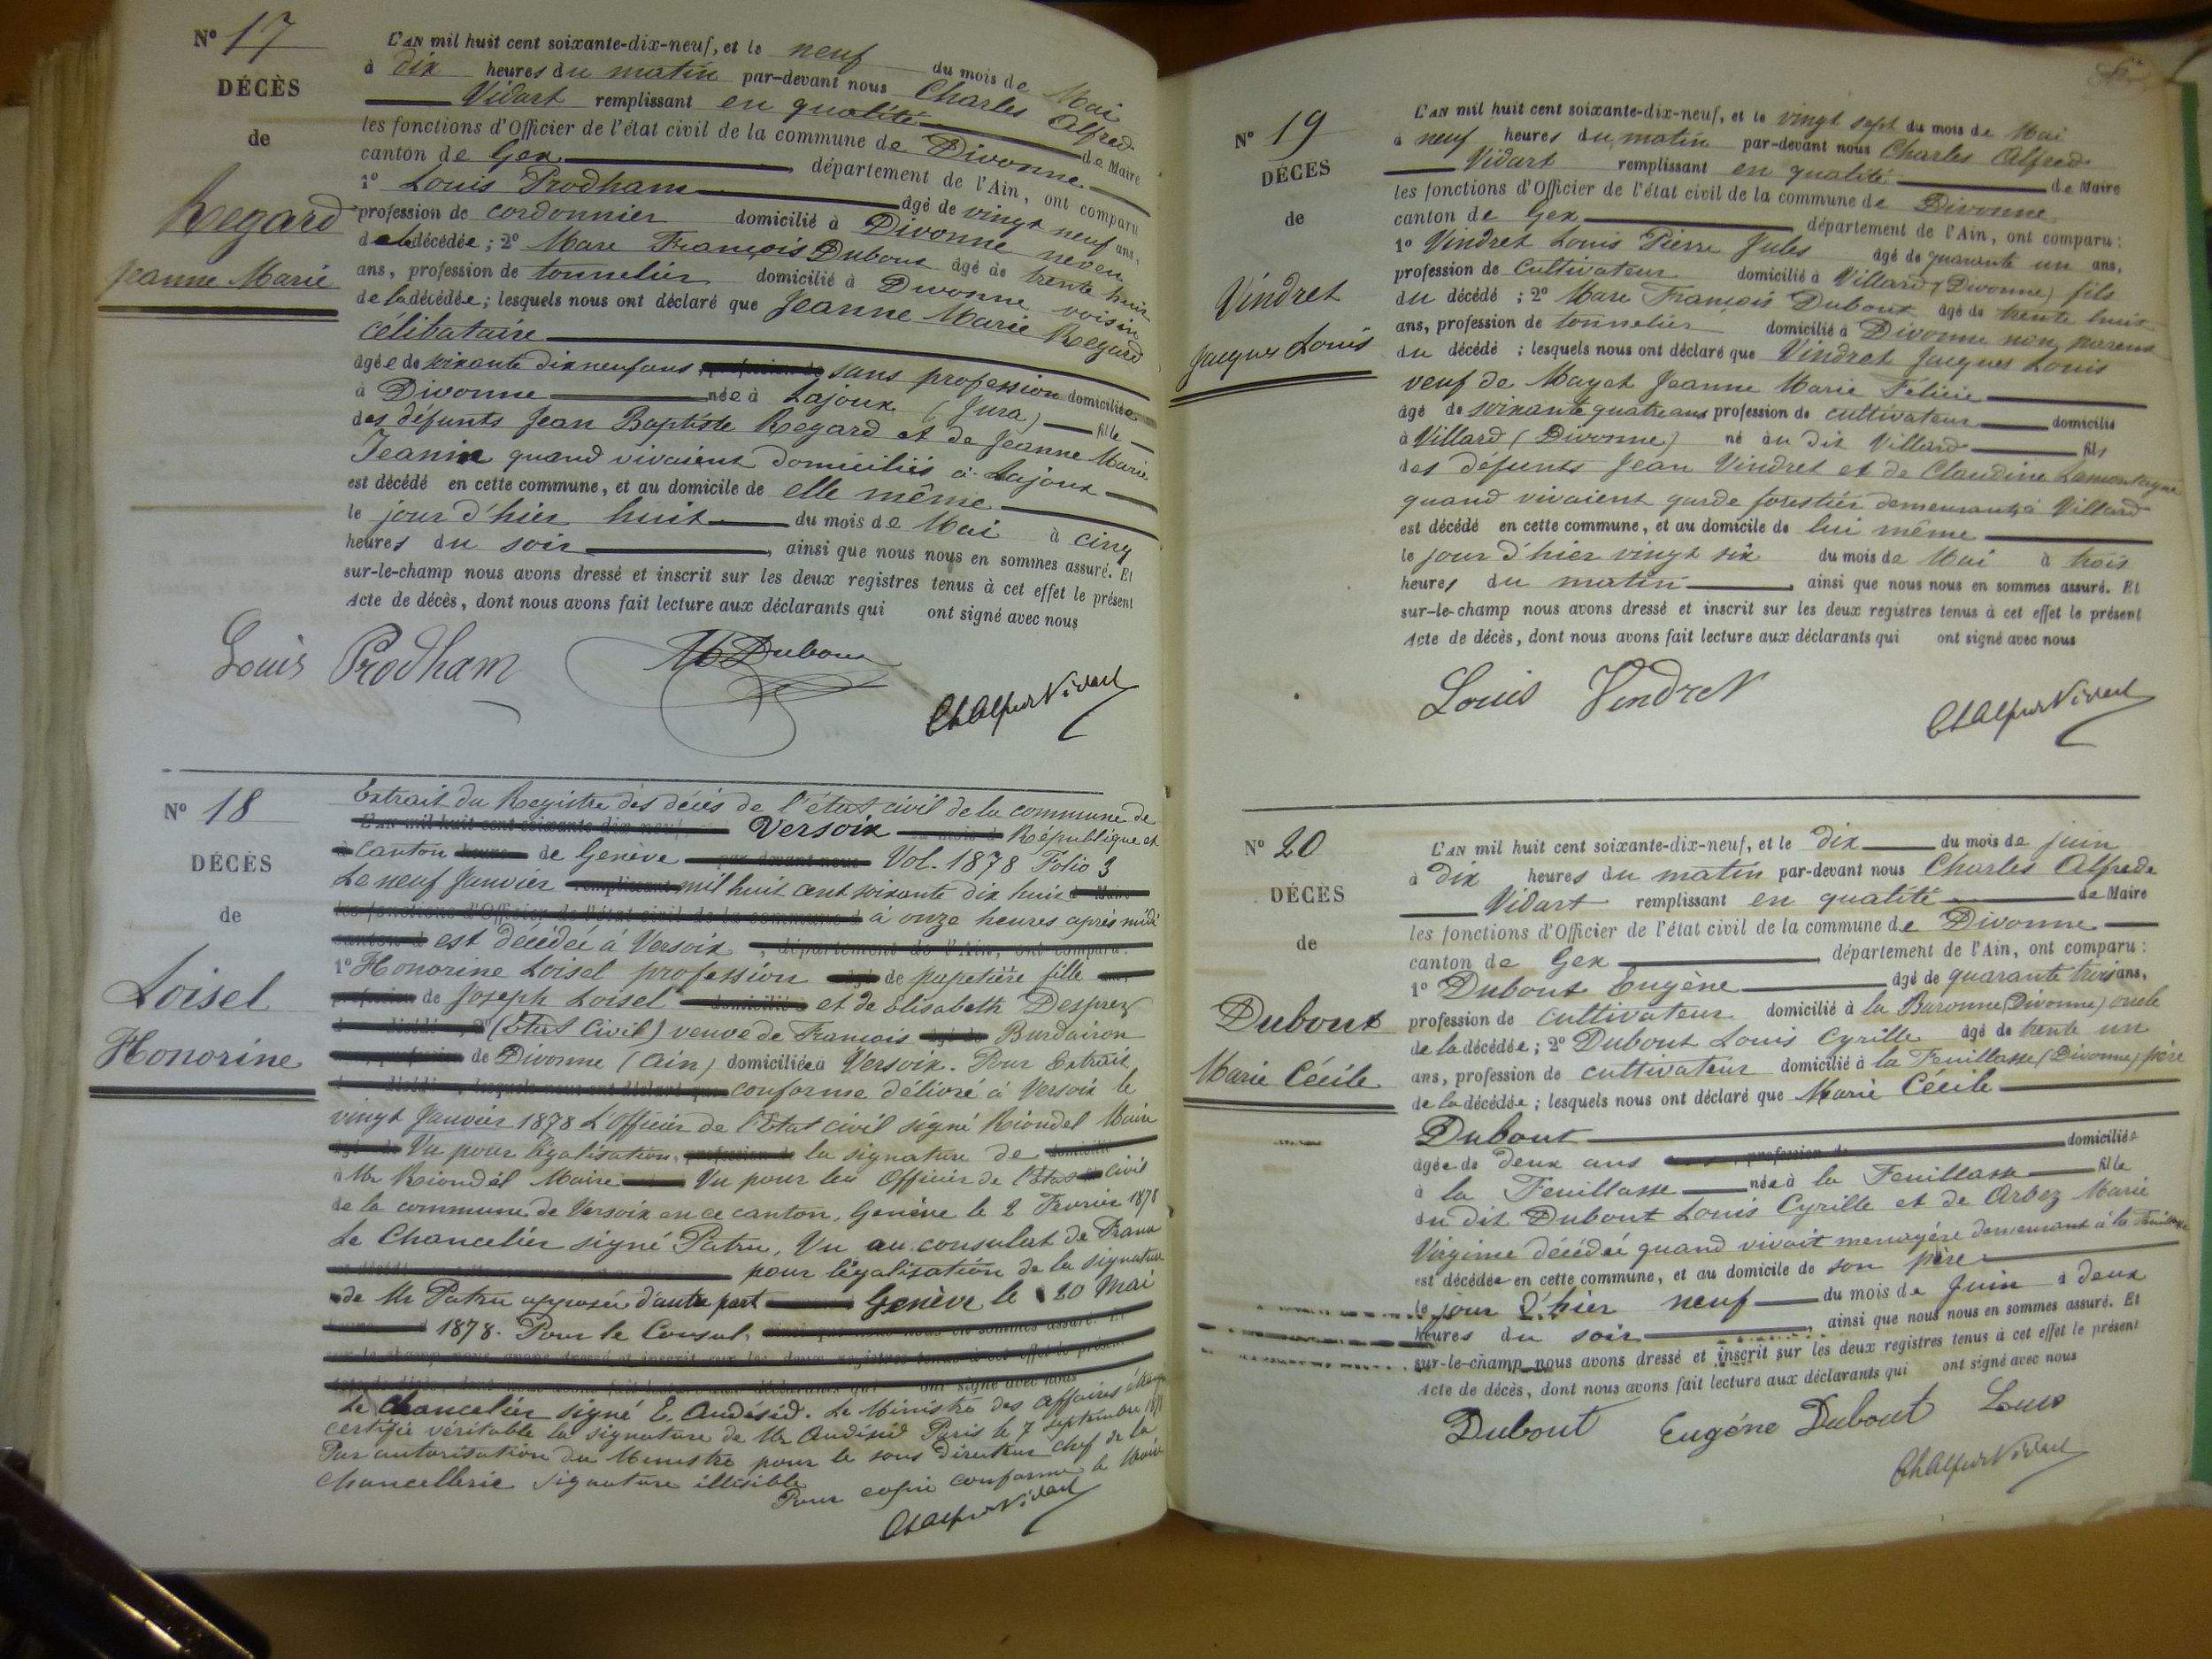 Nº 17
DÉCÈS
de
Regard
Jeanne Marie
L'AN mil huit cent soixante-dix-neuf, et le neuf du mois de Mai
à dix heures du matin par-devant nous Charles Alfred
Vidart remplissant en qualité de Maire
les fonctions d'Officier de l'état civil de la commune de Divonne
canton de Gex département de l'Ain, ont comparu
1º Louis Prodham âgé de vingt neuf ans,
profession de cordonnier domicilié à Divonne neveu
de la décédée; 2º Marc François Dubout âgé de trente huit
ans, profession de tonnelier domicilié à Divonne voisin
de la décédée; lesquels nous ont déclaré que Jeanne Marie Regard
célibataire
âgée de soixante dix neuf ans sans profession domiciliée
à Divonne née à Lajoux (Jura) fille
des défunts Jean Baptiste Regard et de Jeanne Marie
Jeanin quand vivaient domiciliés à Lajoux
est décédé en cette commune, et au domicile de elle même
le jour d'hier huit du mois de Mai à cinq
heures du soir, ainsi que nous nous en sommes assuré. Et
sur-le-champ nous avons dressé et inscrit sur les deux registres tenus à cet effet le présent
Acte de décès, dont nous avons fait lecture aux déclarants qui ont signé avec nous
Louis Prodham MDubout
ChAlfredVidart
Nº 18
DÉCÈS
de
Loisel
Honorine
Extrait du Registre des décès de l'état civil de la commune de
Versoix République et
canton de Genève Vol. 1878 Folio 3
Le neuf Janvier mil huit cent soixante dix huit
à onze heures après midi
est décédée à Versoix
1º Honorine Loisel profession de papetière fille
de Joseph Loisel et de Elisabeth Desprez
(état Civil) veuve de François Burdairon
de Divonne (Ain) domiciliée à Versoix. Pour Extrait
conforme délivré à Versoix le
vingt Janvier 1878 L'Officier de l'Etat civil signé Riondel Maire
Vu pour légalisation, la signature de
à Mr Riondel Maire Vu pour les Officier de l'Etat civil
de la commune de Versoix en ce canton, Genève le 2 Février 1878
Le Chancelier signé Patru, Vu au consulat de France
pour légalisation de la signature
de Mr Patru apposée d'autre part Genève le 20 Mai
1878. Pour le Consul,
Le Chancelier signé E. Le Ministre des affaires
certifie véritable la signature de Mr Paris le 7 septembre
Par autorisation du Ministre pour le sous directeur chef de la
Chancellerie signature illisible
Pour copie conforme le Maire
ChAlfredVidart
Nº 19
DÉCÈS
de
Vindret
Jacques Louis
L'AN mil huit cent soixante-dix-neuf, et le vingt sept du mois de Mai
à neuf heures du matin par-devant nous Charles Alfred
Vidart remplissant en qualité de Maire
les fonctions d'Officier de l'état civil de la commune de Divonne
canton de Gex département de l'Ain, ont comparu:
1º Vindret Louis Pierre Jules âgé de quarante un ans,
profession de cultivateur domicilié à Villard (Divonne) fils
du décédé ; 2º Marc François Dubout âgé de trente huit
ans, profession de tonnelier domicilié à Divonne non parent
du décédé ; lesquels nous ont déclaré que Vindret Jacques Louis
veuf de Mayet Jeanne Marie Félicie
âgé de soixante quatre ans profession de cultivateur domicilié
à Villard (Divonne) né au dit Villard fils
des défunts Jean Vindret et de Claudine Lamontagne
quand vivaient garde forestier demeurant à Villard
est décédé en cette commune, et au domicile de lui même
le jour d'hier vingt six du mois de Mai à trois
heures du matin, ainsi que nous nous en sommes assuré. Et
sur-le-champ nous avons dressé et inscrit sur les deux registres tenus à cet effet le présent
Acte de décès, dont nous avons fait lecture aux déclarants qui ont signé avec nous
Louis Vindret
ChAlfredVidart
Nº 20
DÉCÈS
de
Dubout
Marie Cécile
L'AN mil huit cent soixante-dix-neuf, et le dix du mois de juin
à dix heures du matin par-devant nous Charles Alfrede
Vidart remplissant en qualité de Maire
les fonctions d'Officier de l'état civil de la commune de Divonne
canton de Gex département de l'Ain, ont comparu:
1º Dubout Eugène âgé de quarante trois ans,
profession de cultivateur domicilié à la Baronne (Divonne) oncle
de la décédée; 2º Dubout Louis Cyrille âgé de trente un
ans, profession de cultivateur domicilié à la Feuillasse (Divonne) père
de la décédée; lesquels nous ont déclaré que Marie Cécile
Dubout
âgée de deux ans domiciliée
à la Feuillasse née à la Feuillasse fille
du dit Dubout Louis Cyrille et de Arbez Marie
Virginie décédée quand vivait menagère demeurant à la Feuillasse
est décédée en cette commune, et au domicile de son père
le jour d'hier neuf du mois de Juin à deux
heures du soir, ainsi que nous nous en sommes assuré. Et
sur-le-champ nous avons dressé et inscrit sur les deux registres tenus à cet effet le présent
Acte de décès, dont nous avons fait lecture aux déclarants qui ont signé avec nous
Dubout Eugéne Dubout Luis
ChAlfredVidart